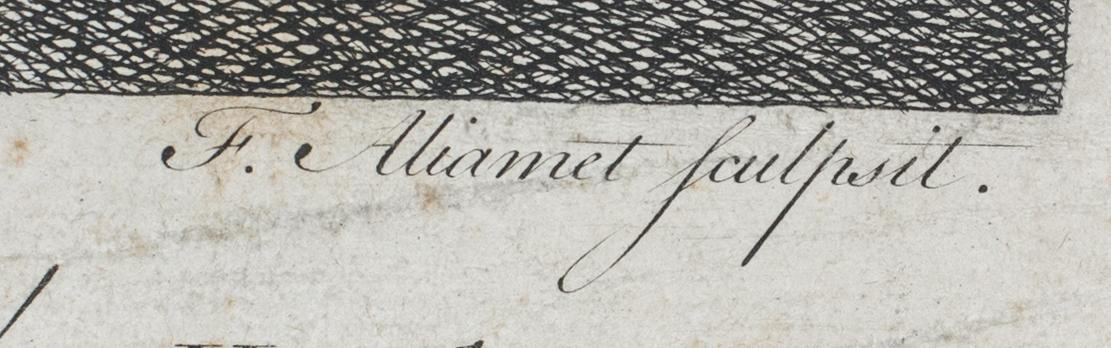 F. Aliamet sculpsit.